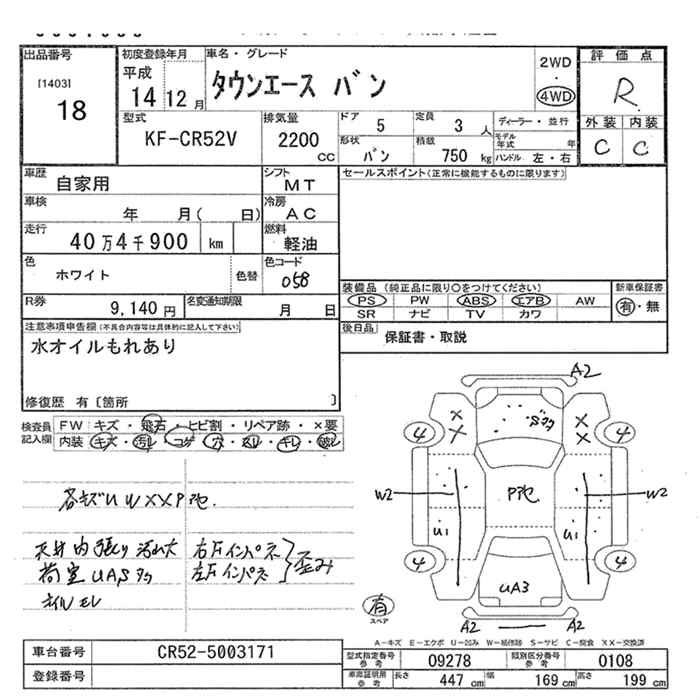 出品番号 初度登録年月 車名・グレード 評価点
[1403] 平成 タウンエース バン 2WD ・ 4WD R
18 14 12月
型式 排気量 ドア 定員 ディーラー・並行 外装 内装
KF-CR52V 2200cc 5 3人 モデル年式 年 C C
形状 積載
バン 750kg ハンドル 左・右
車歴 シフト セールスポイント(正常に機能するものに限ります)
自家用 MT
車検 冷房
年 月( 日) AC
走行 燃料
40万4千900 km 軽油
色 色コード
ホワイト 色替 058
装備品(純正品に限り○をつけてください) 新車保証書
PS PW ABS エアB AW 有・無
SR ナビ TV カワ
R券 名変通知期限
9,140円 月 日
後日品 保証書・取説
注意事項申告欄(不具合内容等は具体的に記入して下さい)
水オイルもれあり
修復歴 有〔箇所 〕
検査員記入欄 FW:キズ・飛石・ヒビ割・リペア跡・×要
内装:キズ・汚れ・コゲ・穴・スレ・キレ・破レ
各キズU W XX P他.
天井内張り汚れ大 右Fインパネ 歪み
荷室UAS多 左Fインパネ
オイルモレ
A2
4 × × × × 4
W2 P他 W2
U1 U1
4 4
UA3
有 スペア
A2 A2
A-キズ E-エクボ U-凹み W-板修跡 S-サビ C-腐食 XX-交換済
車台番号 CR52-5003171
型式指定番号 参考 09278 類別区分番号 参考 0108
登録番号
車庫証明用 参考 長さ 447cm 幅 169cm 高さ 199cm